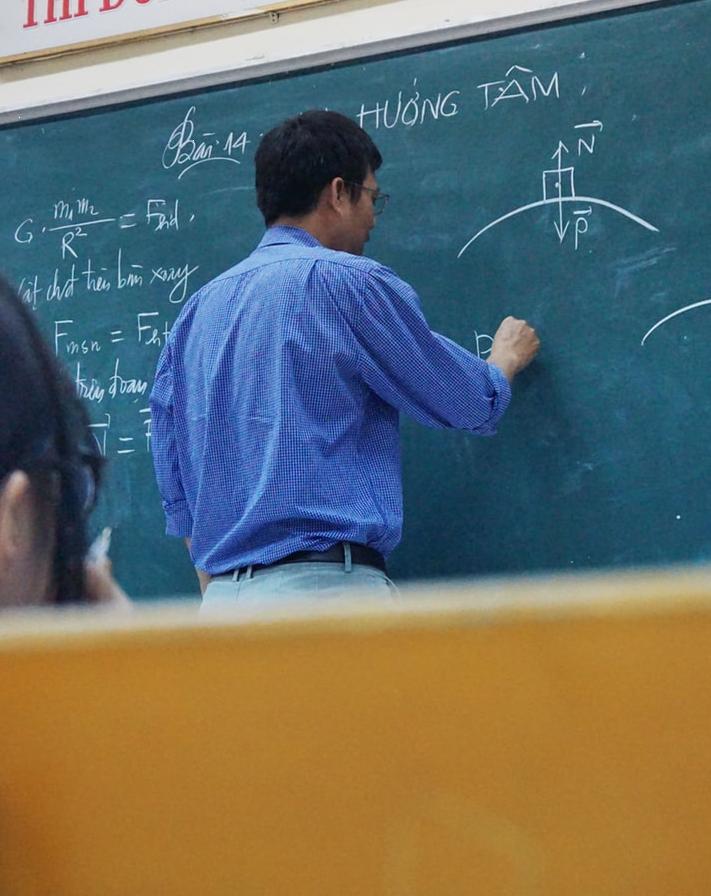 THI Đ
Bài 14: HƯỚNG TÂM
G. m₁m₂ / R² = Fhd.
vật chđ trên bàn xoay
Fmsn = Fht
trên đoạn
N⃗
P⃗
P